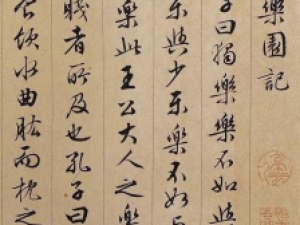 樂園記
子曰獨樂樂不如與
樂與少樂樂不如與
樂此王公大人之樂
賤者所及也孔子曰
食飲水曲肱而枕之